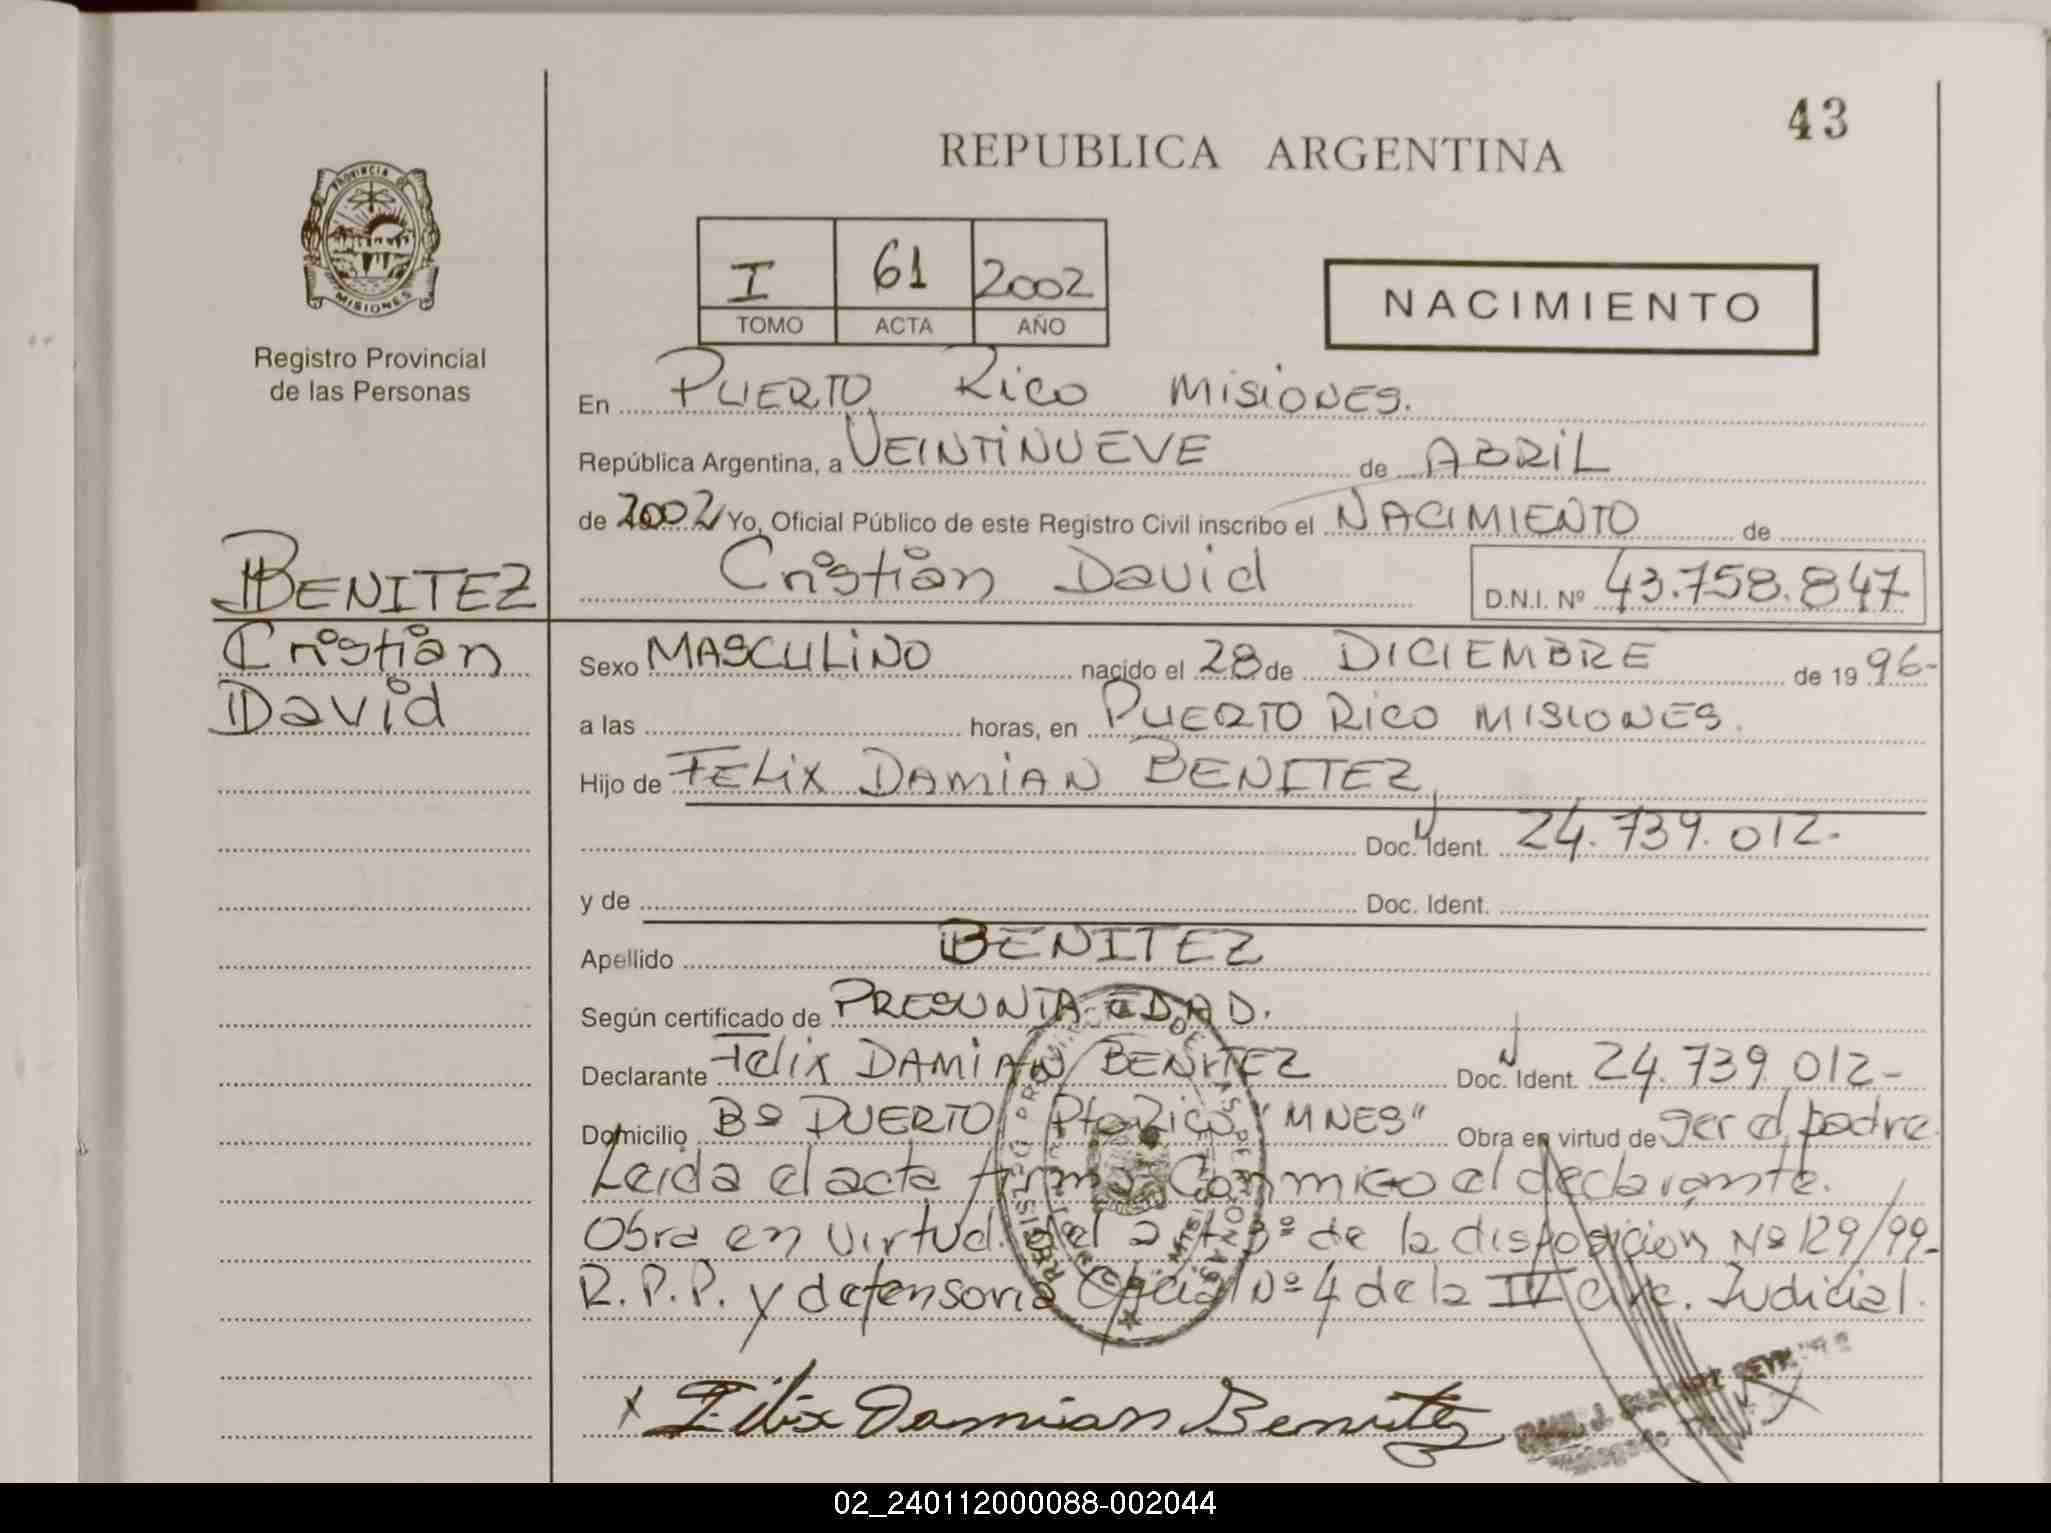 43
REPUBLICA ARGENTINA
PROVINCIA DE
MISIONES
Registro Provincial
de las Personas
I 61 2002
TOMO ACTA AÑO
NACIMIENTO
En PUERTO RICO MISIONES.
República Argentina, a VEINTINUEVE de ABRIL
de 2002 Yo, Oficial Público de este Registro Civil inscribo el NACIMIENTO de
Cristian David D.N.I. Nº 43.758.847
BENITEZ
Cristian
David
Sexo MASCULINO nacido el 28 de DICIEMBRE de 19 96-
a las horas, en PUERTO RICO MISIONES.
Hijo de FELIX DAMIAN BENITEZ
Doc. Ident. 24.739.012-
y de Doc. Ident.
Apellido BENITEZ
Según certificado de PRESUNTA EDAD.
Declarante Felix DAMIAN BENITEZ Doc. Ident. 24.739.012-
Domicilio Bº PUERTO Pto Rico "MNES" Obra en virtud de ser el padre
Leida el acta firma conmigo el declarante.
Obra en virtud del art 3º de la disposicion Nº 129/99-
R.P.P. y defensoria Oficial Nº 4 de la IV Circ. Judicial.
x Felix Damian Benitez
02_240112000088-002044